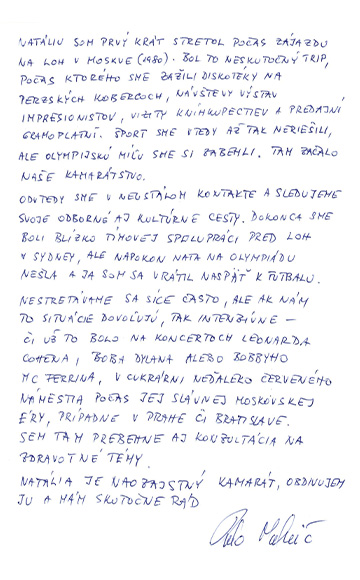 NATÁLIU SOM PRVÝ KRÁT STRETOL POČAS ZÁJAZDU
NA LOH V MOSKVE (1980). BOL TO NESKUTOČNÝ TRIP,
POČAS KTORÉHO SME ZAŽILI DISKOTÉKY NA
PERZSKÝCH KOBERCOCH, NÁVŠTEVY VÝSTAV
IMPRESIONISTOV, VIZITY KNÍHKUPECTIEV A PREDAJNÍ
GRAMOPLATNÍ. ŠPORT SME VTEDY AŽ TAK NERIEŠILI,
ALE OLYMPIJSKÚ MÍĽU SME SI ZABEHLI. TAM ZAČALO
NAŠE KAMARÁTSTVO.
ODVTEDY SME V NEUSTÁLOM KONTAKTE A SLEDUJEME
SVOJE ODBORNÉ AJ KULTÚRNE CESTY. DOKONCA SME
BOLI BLÍZKO TÍMOVEJ SPOLUPRÁCI PRED LOH
V SYDNEY, ALE NAPOKON NATA NA OLYMPIÁDU
NEŠLA A JA SOM SA VRÁTIL NASPÄŤ K FUTBALU.
NESTRETÁVAME SA SÍCE ČASTO, ALE AK NÁM
TO SITUÁCIE DOVOĽUJÚ, TAK INTENZÍVNE –
ČI UŽ TO BOLO NA KONCERTOCH LEONARDA
COHENA, BOBA DYLANA ALEBO BOBBYHO
MC FERRINA, V CUKRÁRNI NEĎALEKO ČERVENÉHO
NÁMESTIA POČAS JEJ SLÁVNEJ MOSKOVSKEJ
ÉRY, PRÍPADNE V PRAHE ČI BRATISLAVE.
SEM TAM PREBEHNE AJ KONZULTÁCIA NA
ZDRAVOTNÉ TÉMY.
NATÁLIA JE NAOZAJSTNÝ KAMARÁT, OBDIVUJEM
JU A MÁM SKUTOČNE RÁD